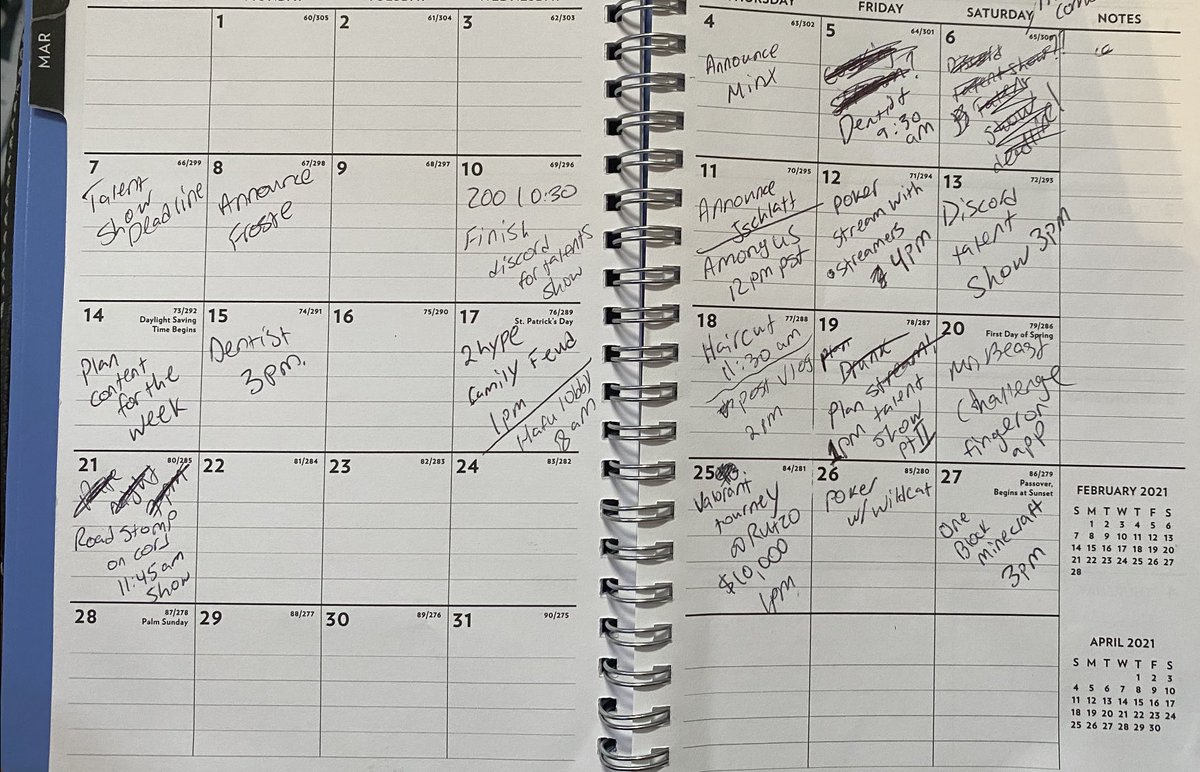 MAR
THURSDAY
FRIDAY
SATURDAY
NOTES
1 60/305
2 61/304
3 62/303
4 63/302
Announce
Minx
5 64/301
Dentist
9:30
am
6 65/300
Discord
talent show!!
talent
show
deadline!
7 66/299
Talent
Show
Deadline
8 67/298
Announce
Froste
9 68/297
10 69/296
200 10:30
Finish
discord
for talents
show
11 70/295
Announce
Jschlatt
Among us
12 pm pst
12 71/294
poker
stream with
streamers
4pm
13 72/293
Discord
talent
show 3pm
14 73/292
Daylight Saving
Time Begins
Plan
content
for the
week
15 74/291
Dentist
3pm.
16 75/290
17 76/289
St. Patrick's Day
2hype
family Feud
1pm
Haru lobby
8 am
18 77/288
Haircut
11:30 am
post vlog
2pm
19 78/287
plan
Drunk
stream!
Plan talent
1pm show
pt II
20 79/286
First Day of Spring
Mr. Beast
Challenge
finger on
app
21 80/285
Road Stomp
on cors
11:45 am
show
22 81/284
23 82/283
24 83/282
25 84/281
Valorant
tourney
$10,000
1pm
26 85/280
poker
w/ wildcat
27 86/279
Passover,
Begins at Sunset
One
Block
minecraft
3pm
28 87/278
Palm Sunday
29 88/277
30 89/276
31 90/275
FEBRUARY 2021
S M T W T F S
1 2 3 4 5 6
7 8 9 10 11 12 13
14 15 16 17 18 19 20
21 22 23 24 25 26 27
28
APRIL 2021
S M T W T F S
1 2 3
4 5 6 7 8 9 10
11 12 13 14 15 16 17
18 19 20 21 22 23 24
25 26 27 28 29 30